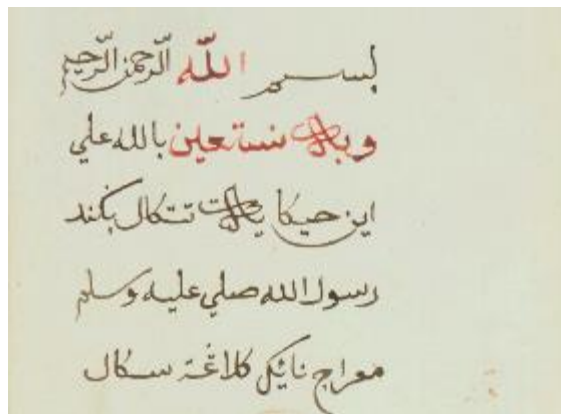 بسم اللّه الرّحمن الرّحيم
وبه نستعين بالله علي
اين حيكايت تتكال بكند
رسول الله صلي عليه وسلم
معراج نايک كلاڠة سكال